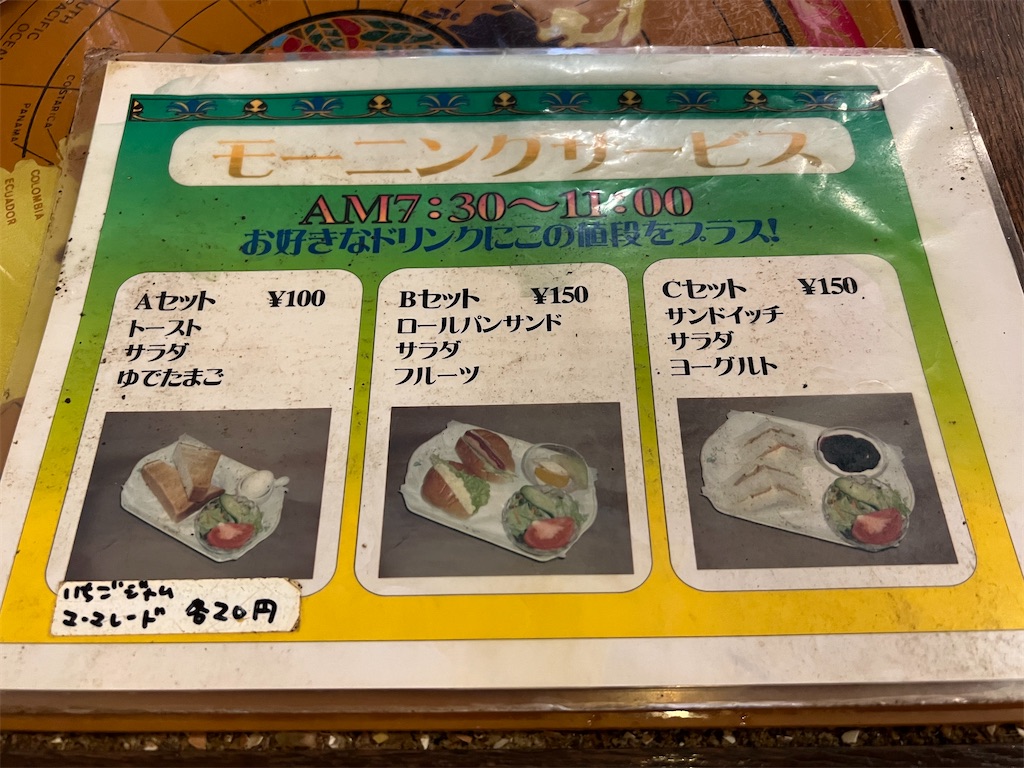 SOUTH
PACIFIC
OCEAN
COSTARICA
PANAMA
COLOMBIA
ECUADOR
モーニングサービス
AM7:30～11:00
お好きなドリンクにこの値段をプラス!
Aセット ¥100
トースト
サラダ
ゆでたまご
Bセット ¥150
ロールパンサンド
サラダ
フルーツ
Cセット ¥150
サンドイッチ
サラダ
ヨーグルト
いちごジャム
マーマレード 各20円